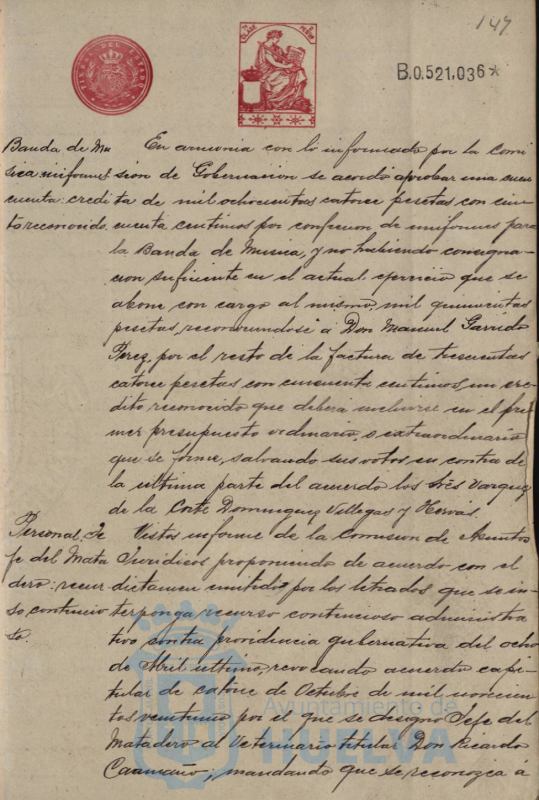 147
TIMBRE DEL ESTADO
B.0.521.036*
Banda de Mu
sica: uniformes
cuenta: credi
to reconocido.
En armonia con lo informado por la Comi
sion de Gobernacion se acordó aprobar una
cuenta de mil ochocientas catorce pesetas con cin
cuenta centimos por confeccion de uniformes para
la Banda de Musica, y no habiendo consigna
cion suficiente en el actual ejercicio que se
abone con cargo al mismo, mil quinientas
pesetas, reconociendose á Don Manuel Garrido
Perez, por el resto de la factura de trescientas
catorce pesetas con cincuenta centimos, un cre
dito reconocido que deberá incluirse en el pri
mer presupuesto ordinario, o extraordinario
que se forme, salvando sus votos en contra de
la ultima parte del acuerdo los Sres Vazquez
de la Corte Dominguez Villegas y Hervás.
Personal, Je
fe del Mata
dero: recur
so contencio
so.
Vistos informe de la Comision de Asuntos
Juridicos proponiendo de acuerdo con el
dictamen emitido por los letrados que se in
terponga recurso contencioso administra
tivo contra providencia gubernativa del ocho
de Abril ultimo, revocando acuerdo capi
tular de catorce de Octubre de mil novecien
tos veintiuno por el que se designó Jefe del
Matadero al Veterinario titular Don Ricardo
Caamaño; mandando que se reconozca á
Ayuntamiento de
HUELVA